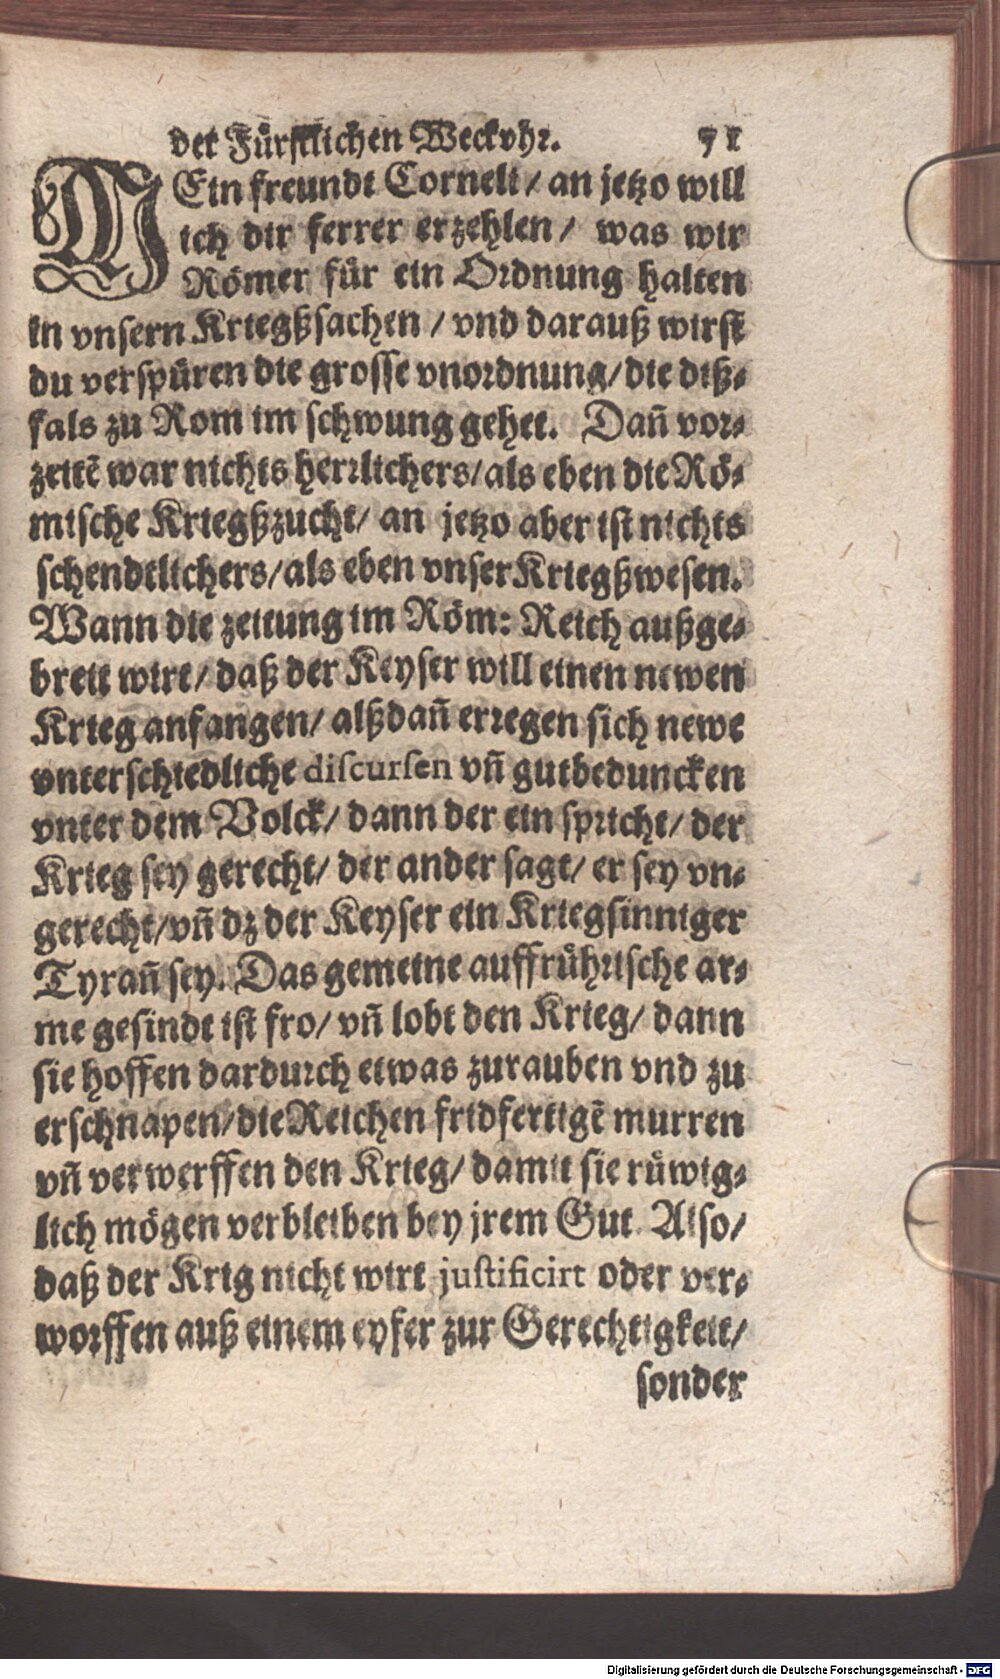 der Fürstlichen Weckvhr. 71
MEin freundt Corneli / an jetzo will
ich dir ferrer erzehlen / was wir
Römer für ein Ordnung halten
in vnsern Kriegßsachen / vnd darauß wirst
du verspüren die grosse vnordnung / die diß-
fals zu Rom im schwung gehet. Dañ vor-
zeitẽ war nichts herrlichers / als eben die Rö-
mische Kriegßzucht / an jetzo aber ist nichts
schendtlichers / als eben vnser Kriegßwesen.
Wann die zeitung im Röm: Reich außge-
breit wirt / daß der Keyser will einen newen
Krieg anfangen / alßdañ erregen sich newe
vnterschiedliche discursen vñ gutbeduncken
vnter dem Volck / dann der ein spricht / der
Krieg sey gerecht / der ander sagt / er sey vn-
gerecht / vñ dz der Keyser ein Kriegsinniger
Tyrañ sey. Das gemeine auffrührische ar-
me gesindt ist fro / vñ lobt den Krieg / dann
sie hoffen dardurch etwas zurauben vnd zu
erschnapen / die Reichen fridfertigẽ murren
vñ verwerffen den Krieg / damit sie rüwig-
lich mögen verbleiben bey jrem Gut. Also /
daß der Krig nicht wirt justificirt oder ver-
worffen auß einem eyfer zur Gerechtigkeit /
sonder
Digitalisierung gefördert durch die Deutsche Forschungsgemeinschaft - DFG